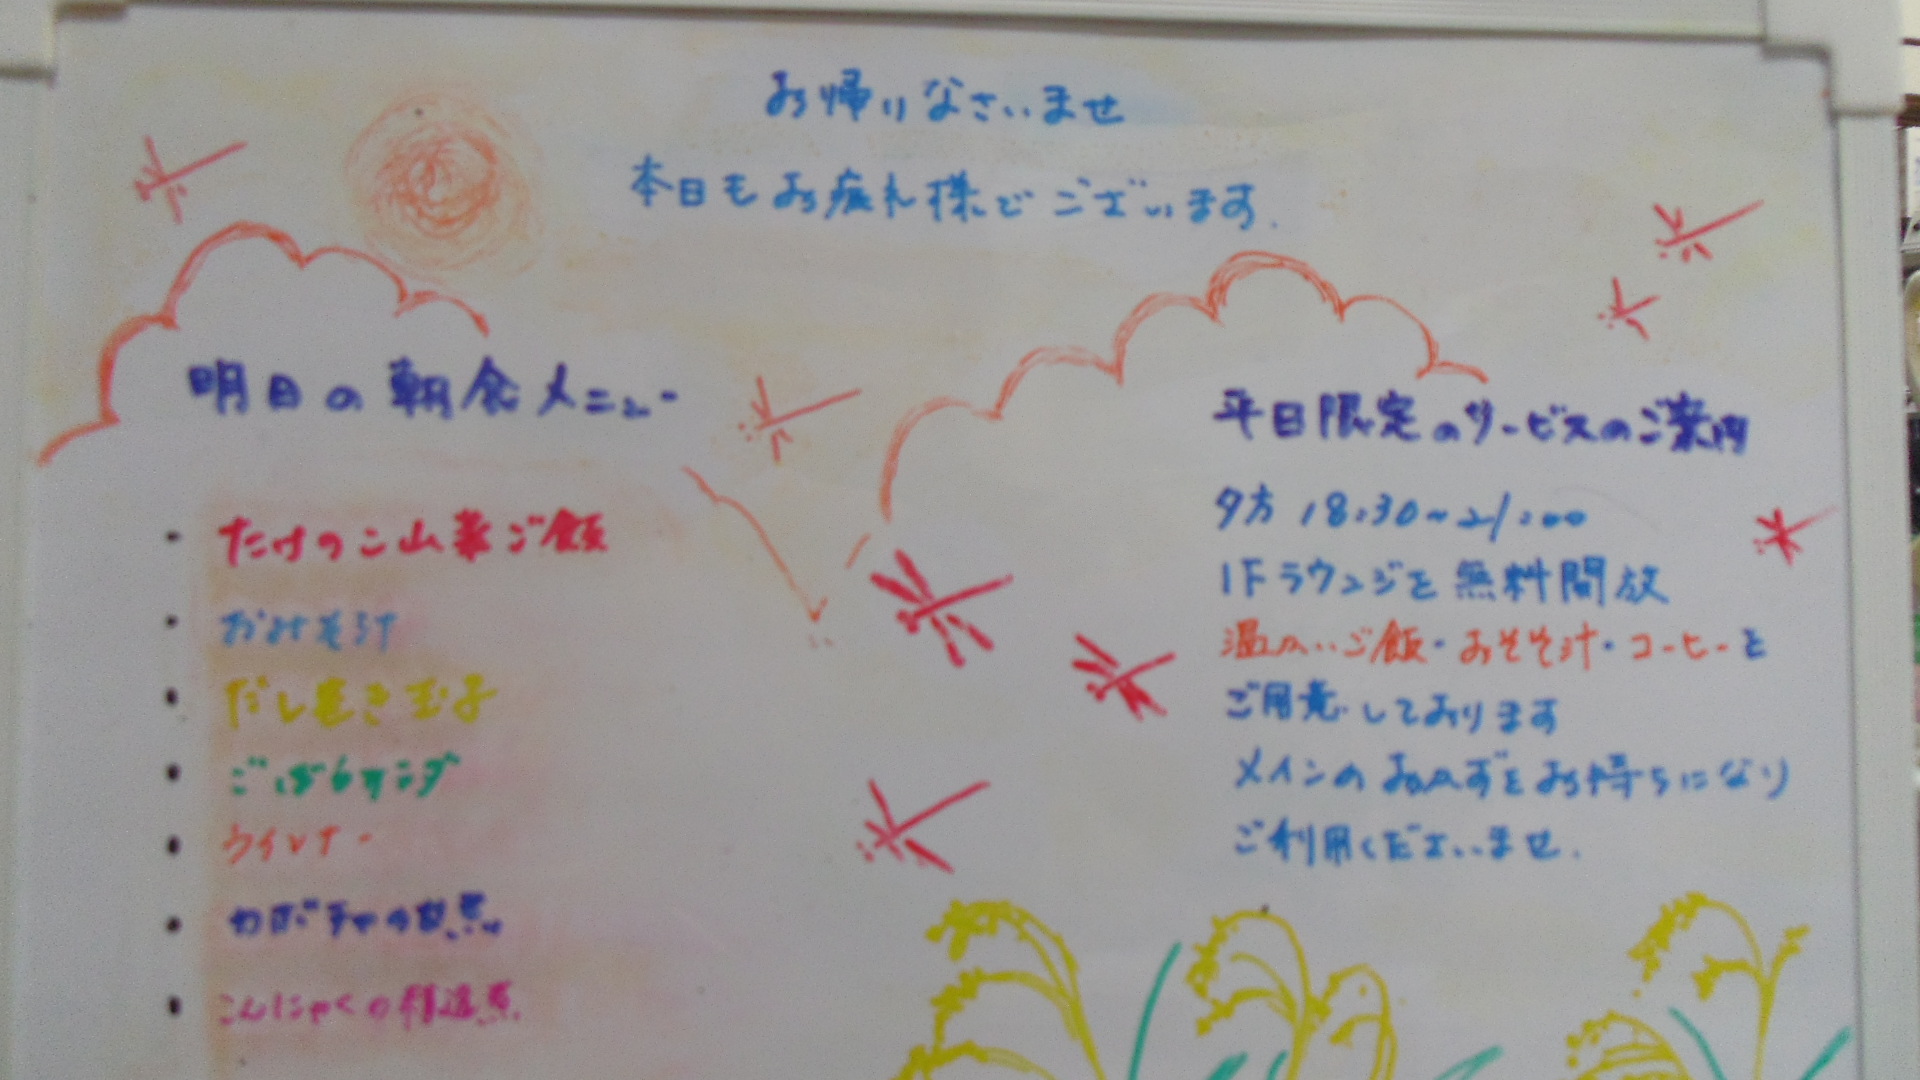 お帰りなさいませ
本日もお疲れ様でございます.
明日の朝食メニュー
・たけのこ山菜ご飯
・おみそ汁
・だし巻き玉子
・ごぼうサラダ
・ウインナー
・カボチャの煮
・こんにゃくの
平日限定のサービスのご案内
夕方 18:30~21:00
1Fラウンジを無料開放
温かいご飯・おそそ汁・コーヒーを
ご用意しております
メインのおかずをお持ちになり
ご利用くださいませ.